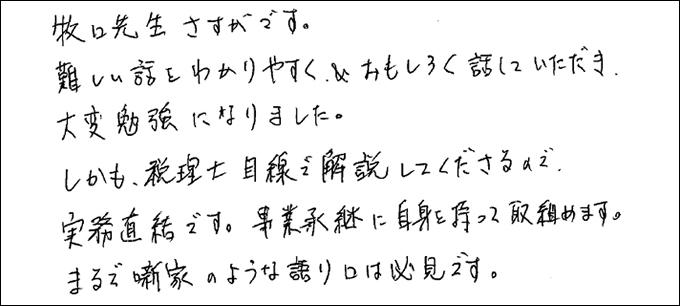 牧口先生 さすがです。
難しい話をわかりやすく、& おもしろく話していただき、
大変勉強になりました。
しかも、税理士目線で解説してくださるので、
実務直結です。事業承継に自身を持って取組めます。
まるで噺家のような語り口は必見です。